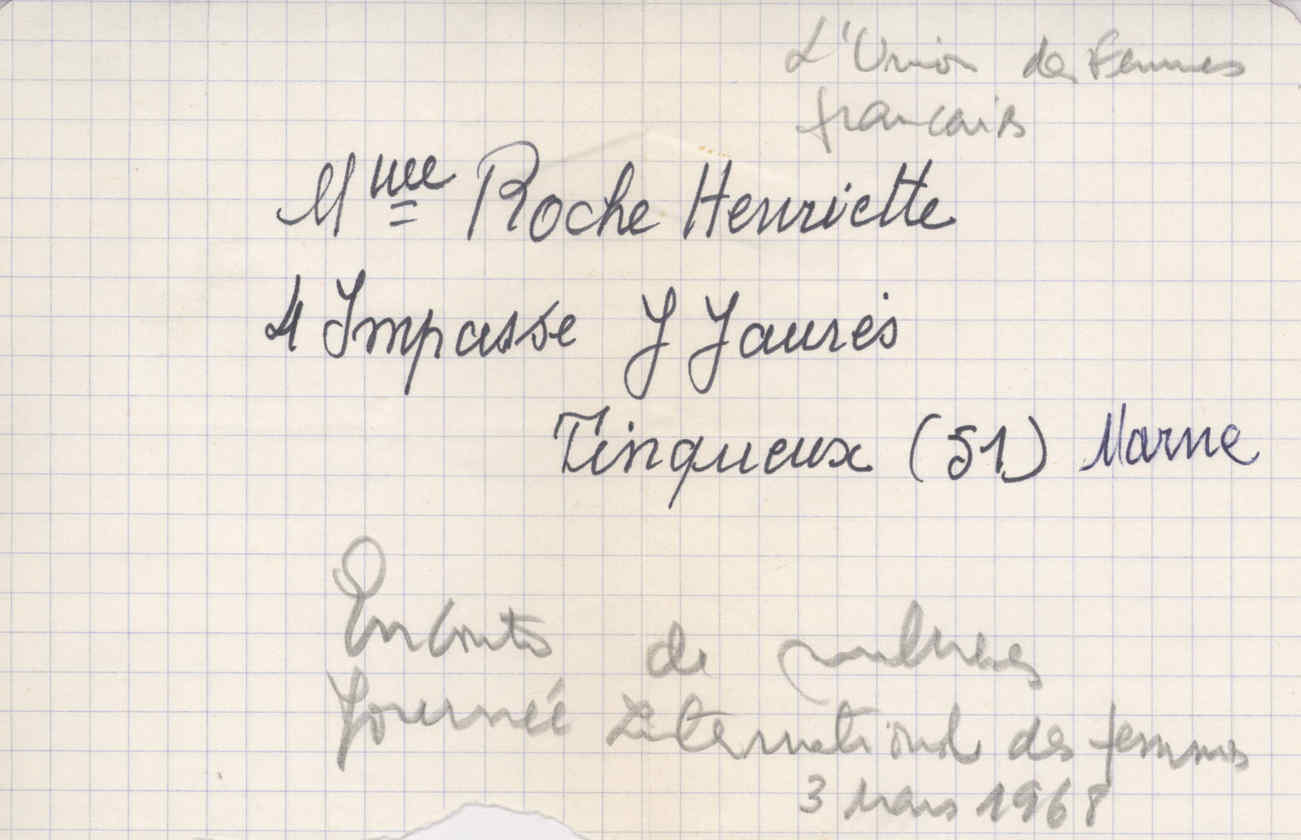 L'Union des Femmes
francais
Mme Roche Henriette
4 Impasse J Jaurès
Tinqueux (51) Marne
de
Journée International des femmes
3 mars 1968